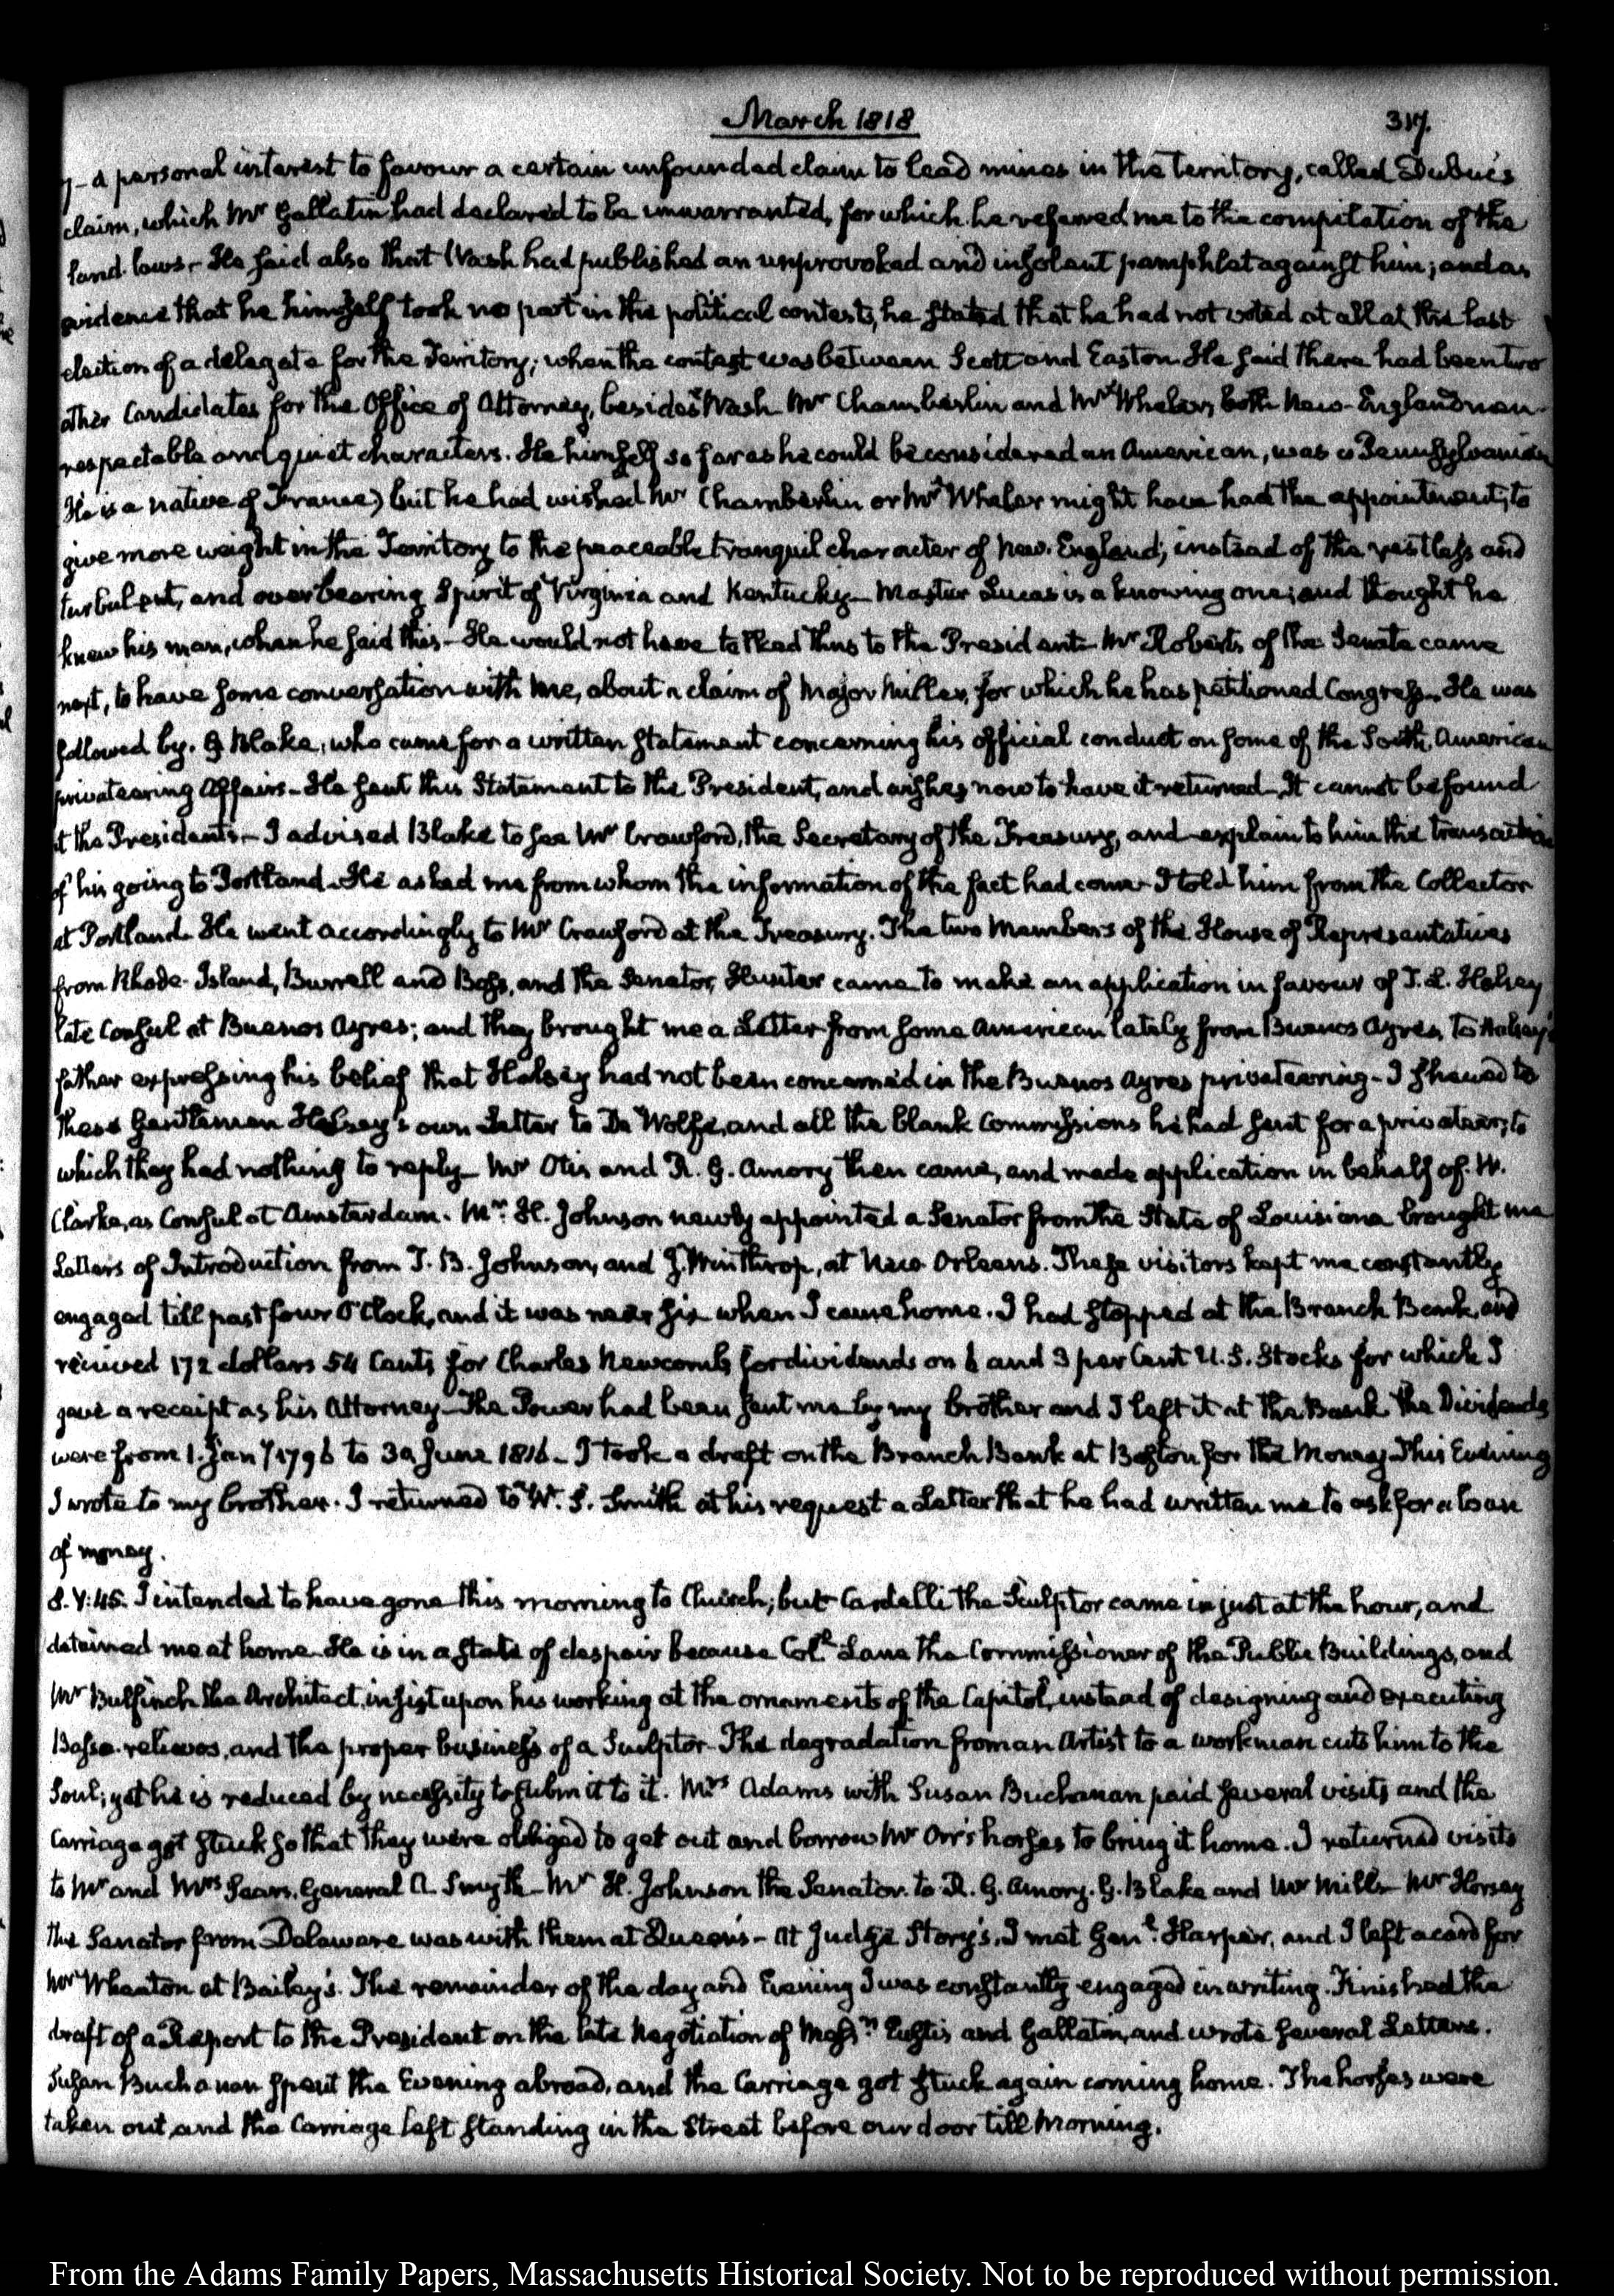 March 1818
317.
7 – a personal interest to favour a certain unfounded claim to lead mines in the territory, called Dubuc's
claim, which Mr Gallatin had declared to be unwarranted, for which he referred me to the compilation of the
land laws – He said also that Wash had published an unprovoked and insolent pamphlet against him; and as
evidence that he himself took no part in the political contests, he stated that he had not voted at all at the last
election of a delegate for the Territory; when the contest was between Scott and Easton. He said there had been two
other Candidates for the Office of Attorney, besides Wash. Mr Chamberlin and Mr Wheler, both New-Englandmen
respectable and quiet characters. He himself so far as he could be considered an American, was a Pennsylvanian
He is a native of France) but he had wished Mr Chamberlin or Mr Wheler might have had the appointment, to
give more weight in the Territory to the peaceable tranquil character of New-England; instead of the restless and
turbulent, and overbearing Spirit of Virginia and Kentucky – Master Lucas is a knowing one; and thought he
knew his man, when he said this – He would not have talked thus to the President – Mr Roberts of the Senate came
next, to have some conversation with me, about a claim of Major Miller, for which he has petitioned Congress. He was
followed by G Blake, who came for a written statement concerning his official conduct on some of the South American
privateering Affairs – He sent this Statement to the President, and wishes now to have it returned – It cannot be found
at the Presidents – I advised Blake to see Mr Crawford, the Secretary of the Treasury, and explain to him the transaction
of his going to Portland. He asked me from whom the information of the fact had come – I told him from the Collector
at Portland. He went accordingly to Mr Crawford at the Treasury. The two Members of the House of Representatives
from Rhode-Island, Burrell and Boss, and the Senator, Hunter came to make an application in favour of T. L. Halsey
late Consul at Buenos Ayres; and they brought me a Letter from some American lately from Buenos Ayres, to Halsey's
father expressing his belief that Halsey had not been concerned in the Buenos Ayres privateering – I shewed to
these Gentlemen Halsey's own Letter to De Wolfe, and all the blank Commissions he had sent for a privateer; to
which they had nothing to reply – Mr Otis and R. G. Amory then came, and made application in behalf of W.
Clarke, as Consul at Amsterdam. Mr. H. Johnson newly appointed a Senator from the State of Louisiana brought me
Letters of Introduction from J. B. Johnson, and J. Winthrop, at New Orleans. These visitors kept me constantly
engaged till past four O'Clock, and it was near six when I came home. I had stopped at the Branch Bank, and
received 172 dollars 54 Cents for Charles Newcomb, for dividends on 6 and 3 per Cent U.S. Stocks for which I
gave a receipt as his Attorney – The Power had been sent me by my brother and I left it at the Bank. The Dividends
were from 1. Jany 1796 to 30 June 1816 – I took a draft on the Branch Bank at Boston for the Money – This Evening
I wrote to my brother. I returned to W. S. Smith at his request a Letter that he had written me to ask for a loan
of money.
8. V:45. I intended to have gone this morning to Church; but Cardelli the Sculptor came in just at the hour, and
detained me at home – He is in a state of despair because Coll Lane the Commissioner of the Public Buildings, and
Mr Bulfinch the Architect, insist upon his working at the ornaments of the Capitol, instead of designing and executing
Basso-relievos, and the proper business of a Sculptor – The degradation from an Artist to a workman cuts him to the
Soul; yet he is reduced by necessity to submit to it. Mrs Adams with Susan Buchanan paid several visits and the
Carriage got stuck so that they were obliged to get out and borrow Mr Orr's horses to bring it home. I returned visits
to Mr and Mrs Sears. General A. Smyth – Mr H. Johnson the Senator. to R. G. Amory. G. Blake and Mr Mills – Mr Horsey
the Senator from Delaware was with them at Queen's – At Judge Story's, I met Genl Harper, and I left a card for
Mr Wheaton at Bailey's. The remainder of the day and Evening I was constantly engaged in writing. Finished the
draft of a Report to the President on the late Negotiation of Messrs Eustis and Gallatin, and wrote several Letters.
Susan Buchanan spent the Evening abroad, and the Carriage got stuck again coming home. The horses were
taken out, and the Carriage left standing in the Street before our door till Morning.
From the Adams Family Papers, Massachusetts Historical Society. Not to be reproduced without permission.